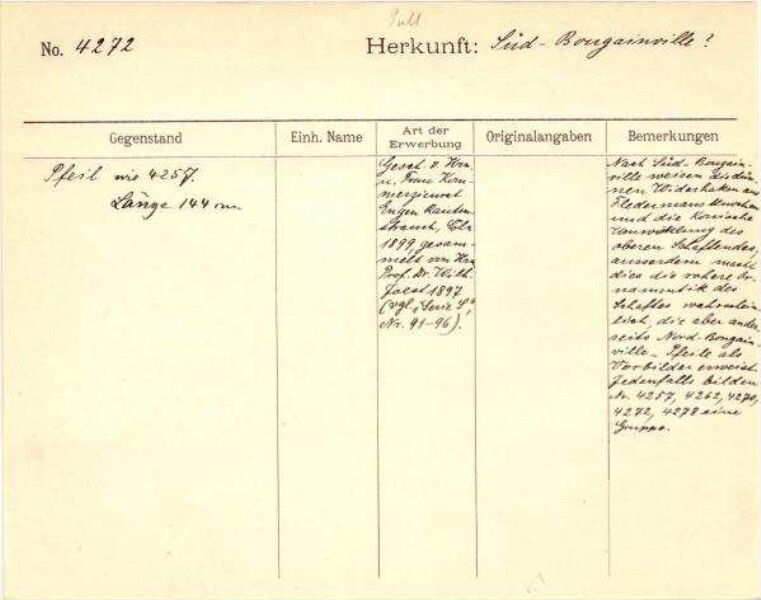 No. 4272
Herkunft: Süd-Bougainville!
Gegenstand
Einh. Name
Art der
Erwerbung
Originalangaben
Bemerkungen
Pfeil wie 4257.
Länge 144 cm
Gesch. v. Hrn.
u. Frau Kom-
merzienrat
Eugen Rauten-
strauch, Cln
1899, gesam-
melt von Hrn
Prof. Dr. Wilh.
Joest 1897
(vgl. „Serie S",
Nr. 91-96).
Nach Süd-Bougain-
ville weisen die dün-
nen Widerhaken aus
Fledermausknochen
und die konische
Umwicklung des
oberen Schaftendes,
ausserdem macht
dies die rohere Or-
namentik des
Schaftes wahrschein-
lich, die aber ander-
seits Nord-Bougain-
ville-Pfeile als
Vorbilder erweist.
Jedenfalls bilden
Nr. 4257, 4262, 4270,
4272, 4278 eine
Gruppe.